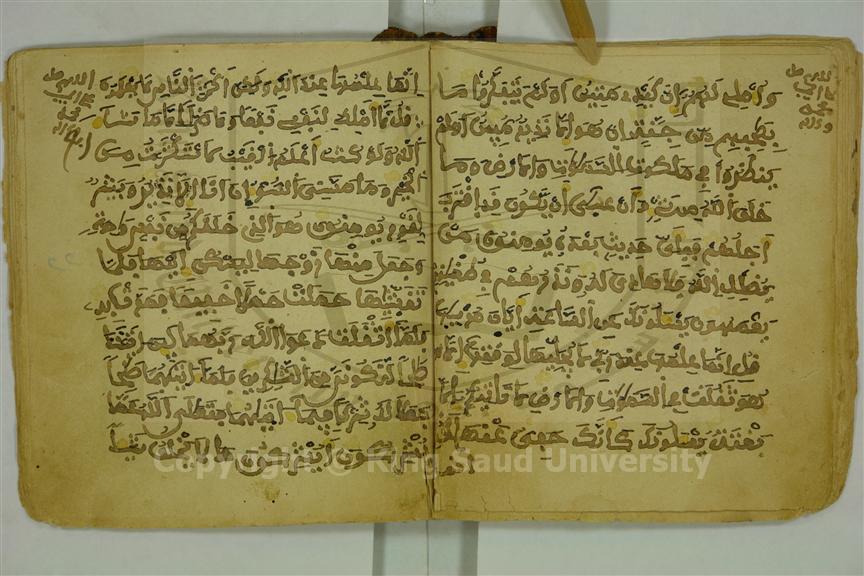 وأملي لهم إن كيدي متين أولم يتفكروا ما
بصاحبهم من جنة إن هو إلا نذير مبين أولم
ينظروا في ملكوت السموات والارض وما
خلق الله من شيء وأن عسى أن يكون قد اقترب
أجلهم فبأي حديث بعده يومنون من
يضلل الله فلا هادي له ونذرهم في طغينهم
يعمهون يسلونك عن الساعة أيان مرسيها
قل إنما علمها عند ربي لا يجليها لوقتها إلا
هو ثقلت في السموات والارض لا تأتيكم إلا
بغتة يسلونك كأنك حفي عنها قل
إنما علمها عند الله ولكن أكثر الناس لا يعلمون
قل لا أملك لنفسي نفعا ولا ضرا إلا ما شاء
الله ولو كنت أعلم الغيب لاستكثرت من
الخير وما مسني السوء إن أنا إلا نذير وبشير
لقوم يومنون هو الذي خلقكم من نفس واحدة
وجعل منها زوجها ليسكن إليها فلما
تغشيها حملت حملا خفيفا فمرت به
فلما أثقلت دعوا الله ربهما لين اتيتنا
صلحا لنكونن من الشكرين فلما اتيهما صلحا
جعلا له شركا فيما اتيهما فتعلى الله عما
يشركون أيشركون ما لا يخلق شيا
Copyright © King Saud University